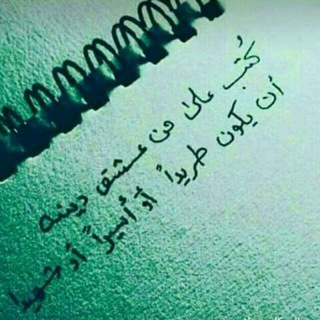 كُتب على من عشق دينه
أن يكون طريداً أو أسيراً أو شهيدا